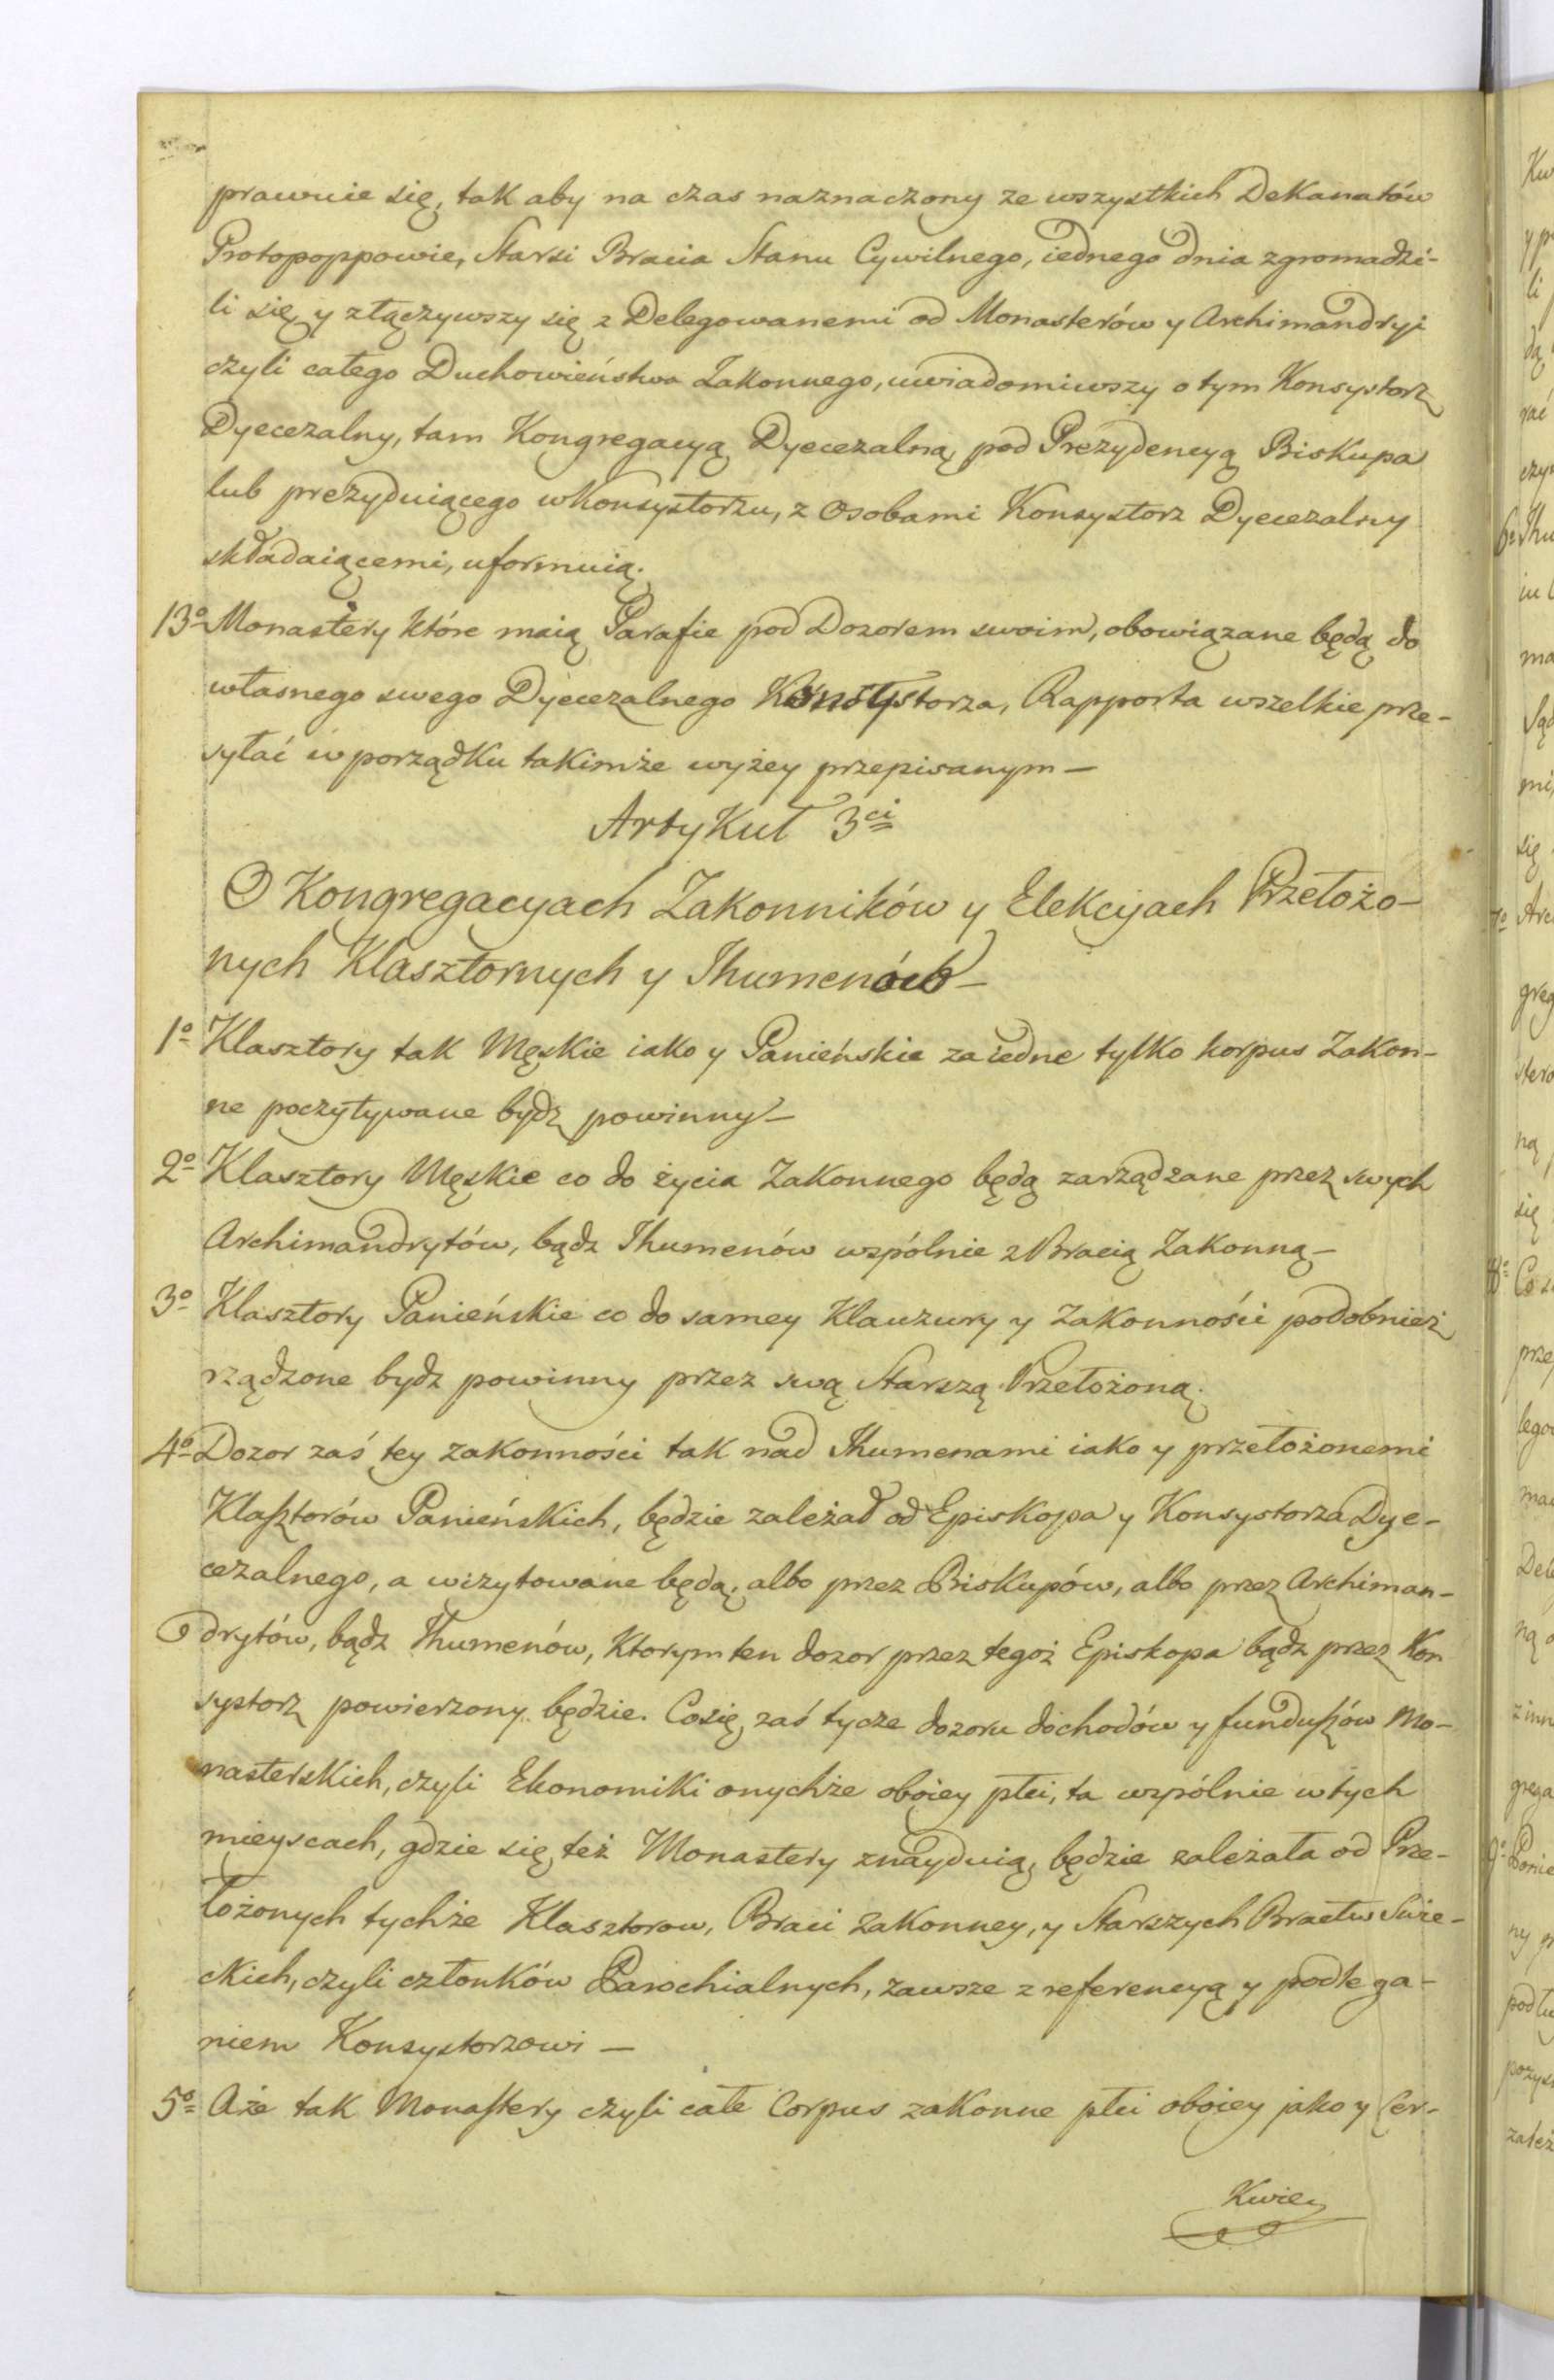 prawuie się, tak aby na czas naznaczony ze wszystkich Dekanatów
Protopoppowie, Starsi Bracia Stanu Cywilnego, iednego dnia zgromadzi-
li się, y złączywszy się z Delegowanemi od Monasterów y Archimandryi
czyli całego Duchowieństwa Zakonnego, uwiadomiwszy o tym Konsystorz
Dyecezalny, tam Kongregacyą Dyecezalną pod Prezydencyą Biskupa
lub prezyduiącego w Konsystorzu, z Osobami Konsystorz Dyecezalny
składaiącemi, uformuią.
13o Monastery które maią Parafie pod Dozorem swoim, obowiązane będą do
własnego swego Dyecezalnego Konsystorza, Rapporta wszelkie prze-
syłać w porządku takimże wyżey przepisanym —
Artykuł 3ci
O Kongregacyach Zakonników y Elekcyach Przełożo-
nych Klasztornych y Ihumenów —
1o Klasztory tak Męskie iako y Panieńskie za iedne tylko korpus Zakon-
ne poczytywane bydz powinny —
2o Klasztory Męskie co do życia Zakonnego będą zarządzane przez swych
Archimandrytów, bądz Ihumenów wspólnie z Bracią Zakonną —
3o Klasztory Panieńskie co do samey Klauzury y Zakonności podobnież
rządzone bydz powinny przez swą Starszą Przełożoną.
4o Dozor zaś tey zakonności tak nad Ihumenami iako y przełożonemi
Klasztorów Panieńskich, będzie zależał od Episkopa y Konsystorza Dye-
cezalnego, a wizytowane będą, albo przez Biskupów, albo przez Archiman-
drytów, bądz Ihumenów, Ktorym ten dozor przez tegoż Episkopa bądz przez Kon
systorz powierzony będzie. Co się zaś tycze dozoru dochodów y funduszów Mo-
nasterskich, czyli Ekonomiki onychże oboiey płci, ta wspólnie w tych
mieyscach, gdzie się też Monastery znayduią, będzie zależała od Prze-
łożonych tychże Klasztorow, Braci Zakonney, y Starszych Bractw Świe-
ckich, czyli członków Parochialnych, zawsze z referencyą y podlega-
niem Konsystorzowi —
5o Aże tak Monastery czyli całe Corpus zakonne płci oboiey jako y Cer-